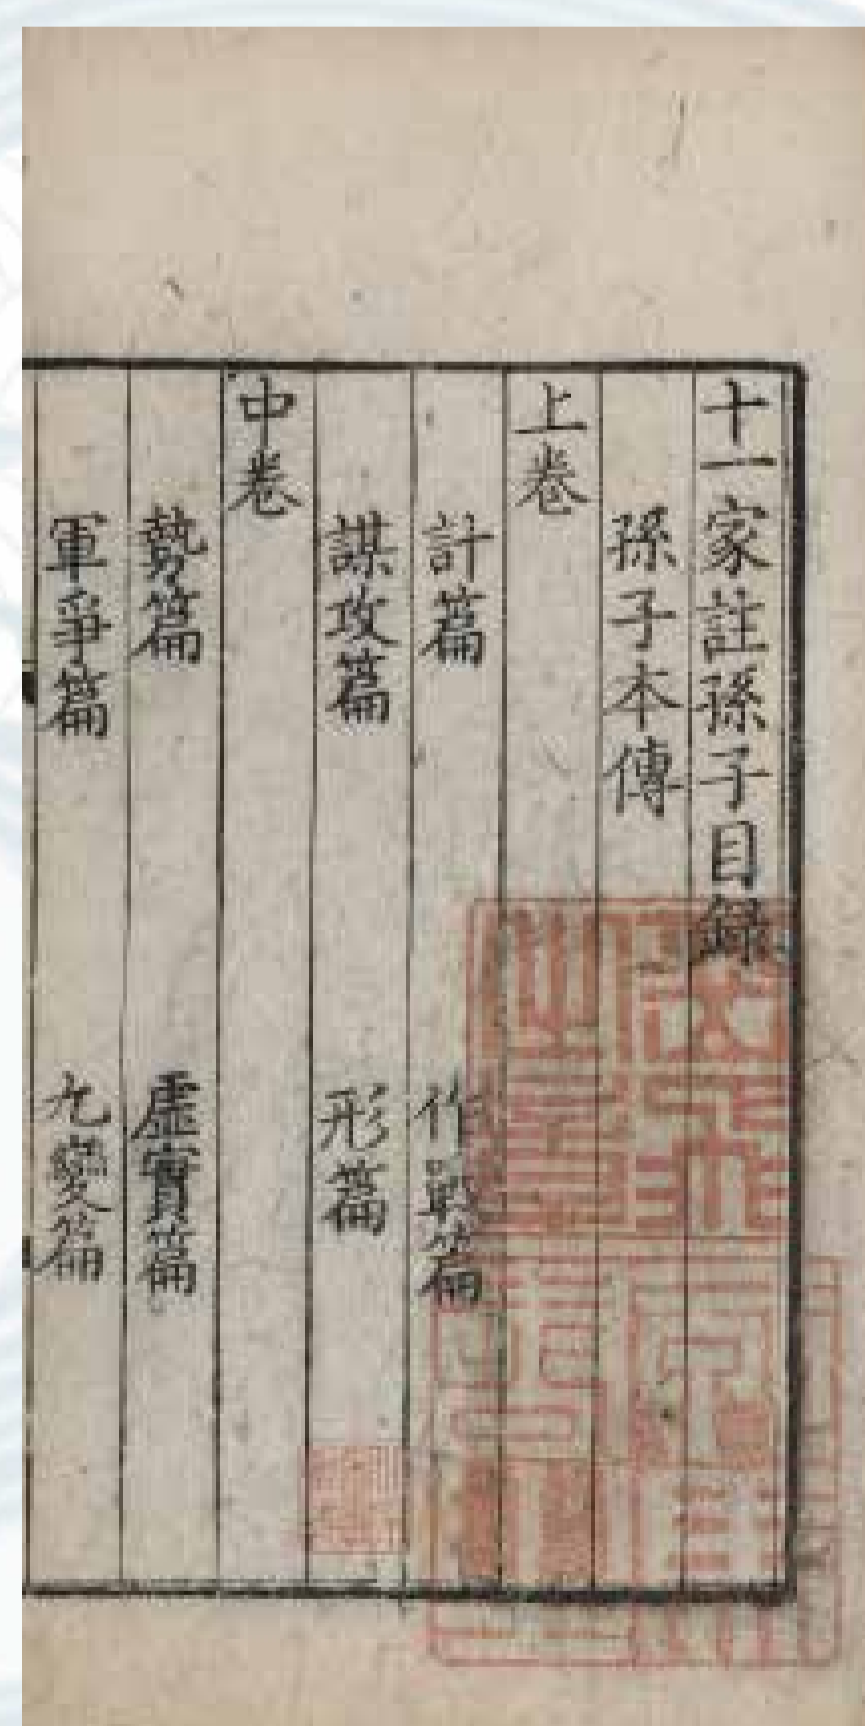 十一家註孫子目録
孫子本傳
上卷
計篇 作戰篇
謀攻篇 形篇
中卷
勢篇 虛實篇
軍爭篇 九變篇